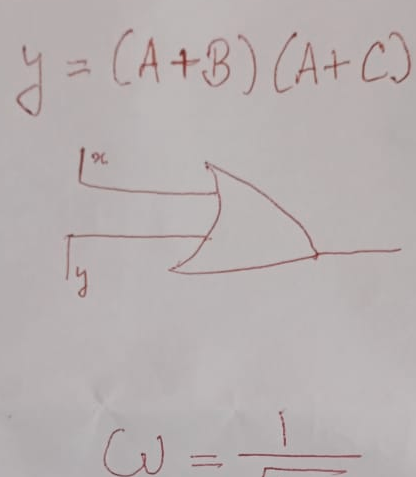 y = (A+B)(A+C)
x
y
ω = 1